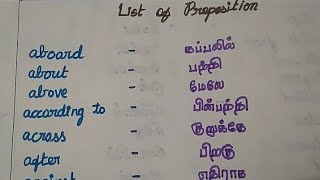 List of Preposition
aboard - கப்பலில்
about - பற்றி
above - மேலே
according to - பின்பற்றி
acrass - குறுக்கே
after - பிறகு
against - எதிராக